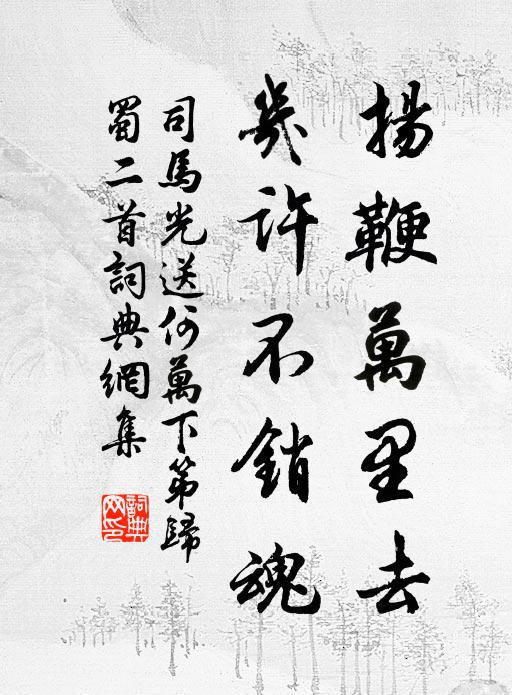 揚鞭萬里去
幾許不銷魂
司馬光送何萬下第歸
蜀二首詞典網集
詞典网印